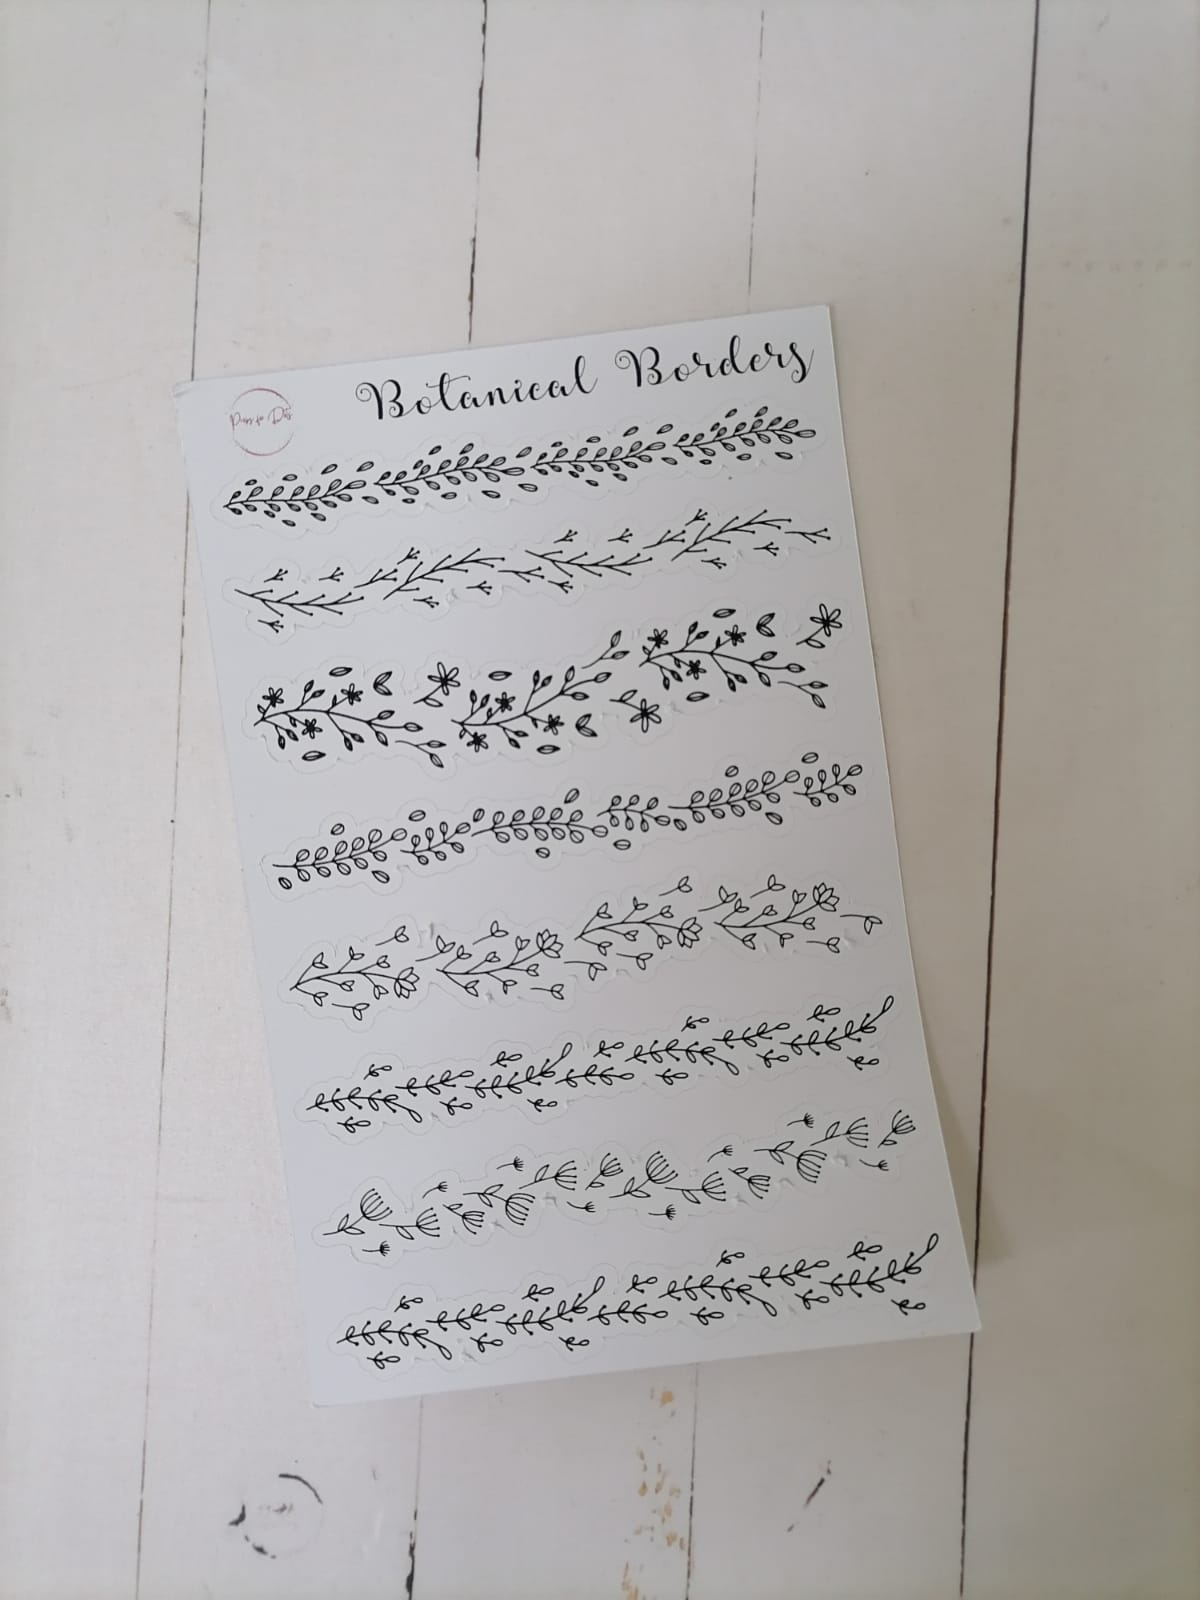 Botanical Borders